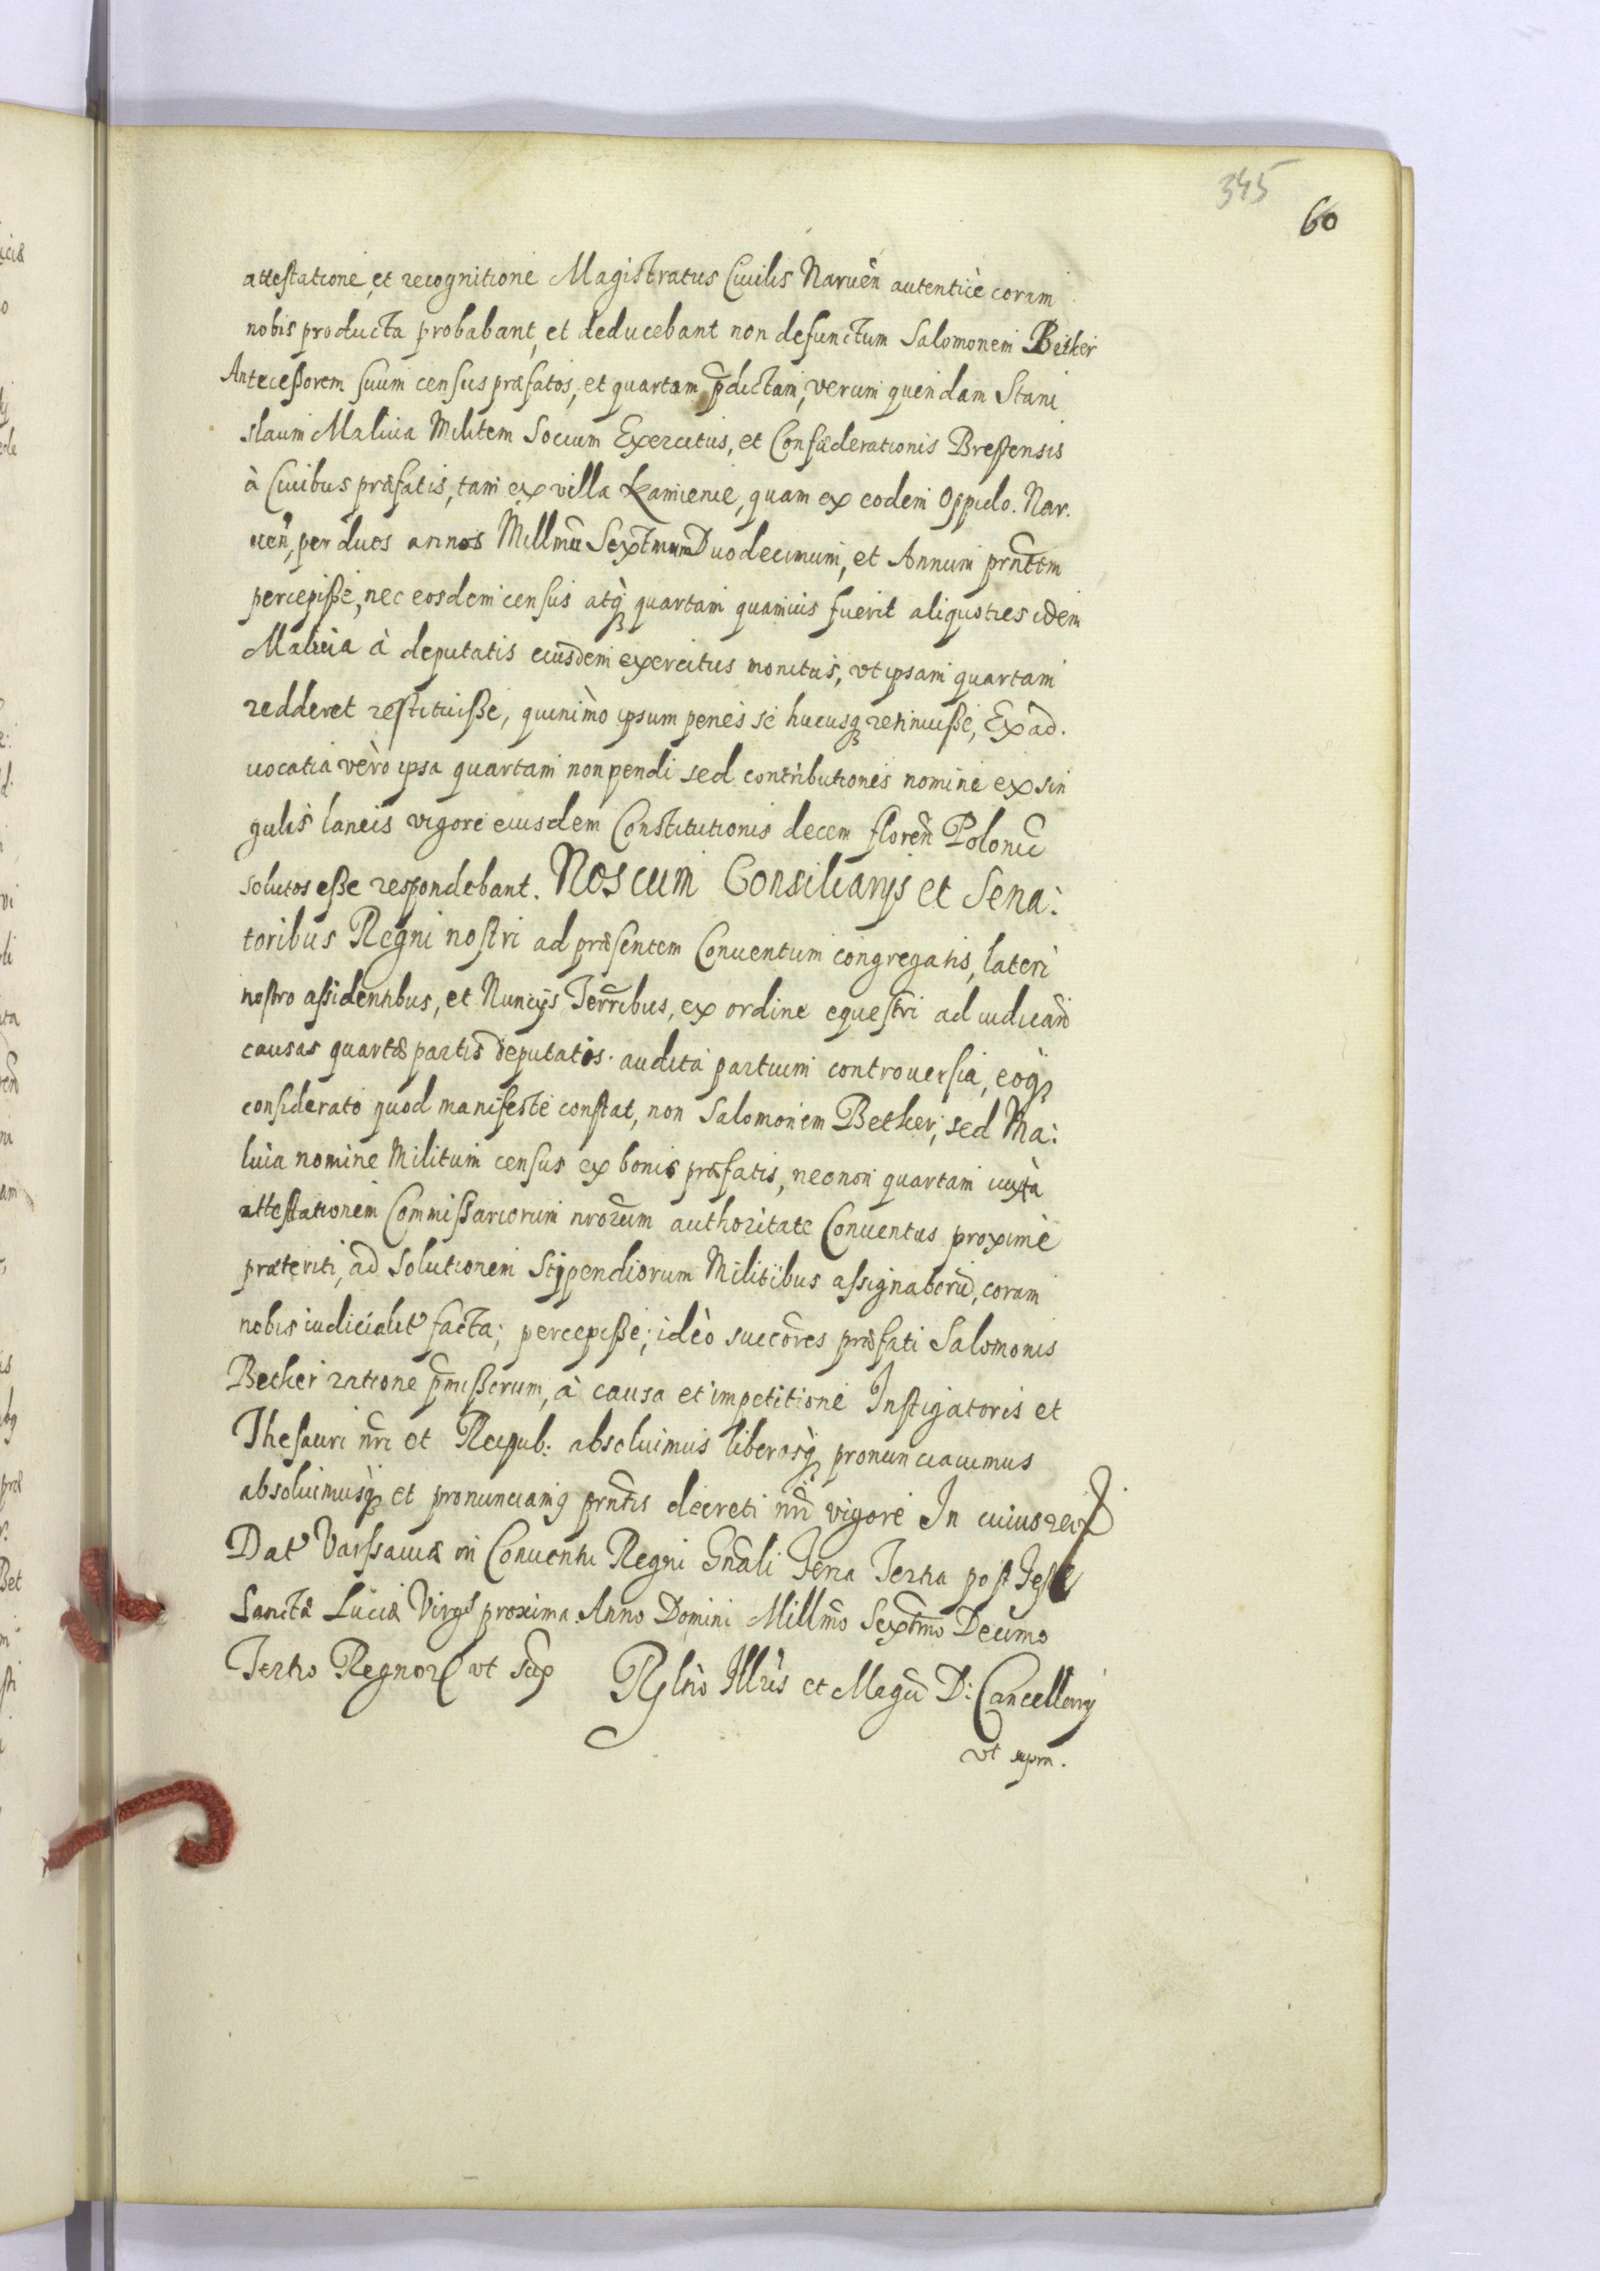 345
60
attestatione, et recognitione Magistratus Ciuilis Naruen̄ autenticè coram
nobis producta probabant, et deducebant non defunctum Salomonem Betker
Antecessorem suum census præfatos, et quartam p̄dictam, verum quendam Stani
slaum Maliuia Militem Socium Exercitus, et Confœderationis Brestensis
à Ciuibus præfatis, tam ex villa Kamienie, quam ex eodem Oppido. Nar.
uen̄, per duos annos Millm̄u Sextm̄um Duodecimum, et Annum prn̄tem
percepisse, nec eosdem census atq; quartam quamuis fuerit aliquoties idem
Maliuia à deputatis eiusdem exercitus monitus, vt ipsam quartam
redderet restituisse, quinimò ipsum penes se hucusq; retinuisse, Ex ad.
uocatia vero ipsa quartam non pendi sed contributionis nomine ex sin
gulis laneis vigore eiusdem Constitutionis decem floren̄ Polonic̄
solutos esse respondebant. Nos cum Consiliarijs et Sena:
toribus Regni nostri ad præsentem Conuentum congregatis, lateri
nostro assidentibus, et Nuncijs Terr̄ribus, ex ordine equestri ad iudicand̄
causas quartæ partis deputatis. audita partium controuersia, eoq;
considerato quod manifeste constat, non Salomonem Betker, sed Ma:
luia nomine Militum census ex bonis præfatis, necnon quartam iuxtà
attestationem Commissariorum nrorum authoritate Conuentus proximè
præteriti, ad solutionem Stipendiorum Militibus assignatorū, coram
nobis iudicialit facta; percepisse; ideò succōres præfati Salomonis
Betker ratione p̄missorum, à causa et impetitione Instigatoris et
Thesauri nr̄i et Reipub: absoluimus liberosq; pronunciauimus
absoluimusq; et pronunciamq prn̄tis decreti nr̄i vigore In cuius rei
Dat Varsauiæ in Conuentu Regni Gn̄ali Feria Tertia post Fest
Sanctæ Luciæ Virgs proxima. Anno Domini Millm̄o Sextm̄o Decimo
Tertio Regnor vt sup̄ Rlñò Illris et Magci D: Cancellarij
vt supra.